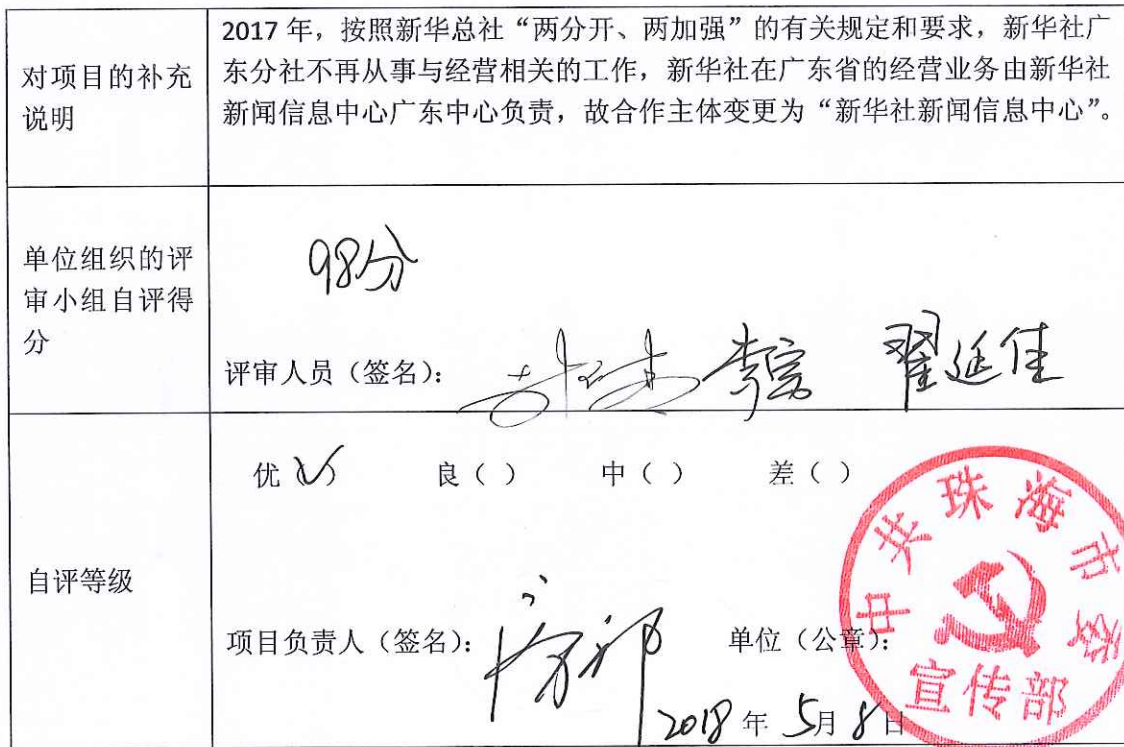 对项目的补充
说明
2017 年，按照新华总社“两分开、两加强”的有关规定和要求，新华社广
东分社不再从事与经营相关的工作，新华社在广东省的经营业务由新华社
新闻信息中心广东中心负责，故合作主体变更为“新华社新闻信息中心”。
单位组织的评
审小组自评得
分
98分
评审人员（签名）： 翟延佳
自评等级
优（√） 良（ ） 中（ ） 差（ ）
项目负责人（签名）： 单位（公章）：
2018 年 5月 8日
中共珠海市委
宣传部